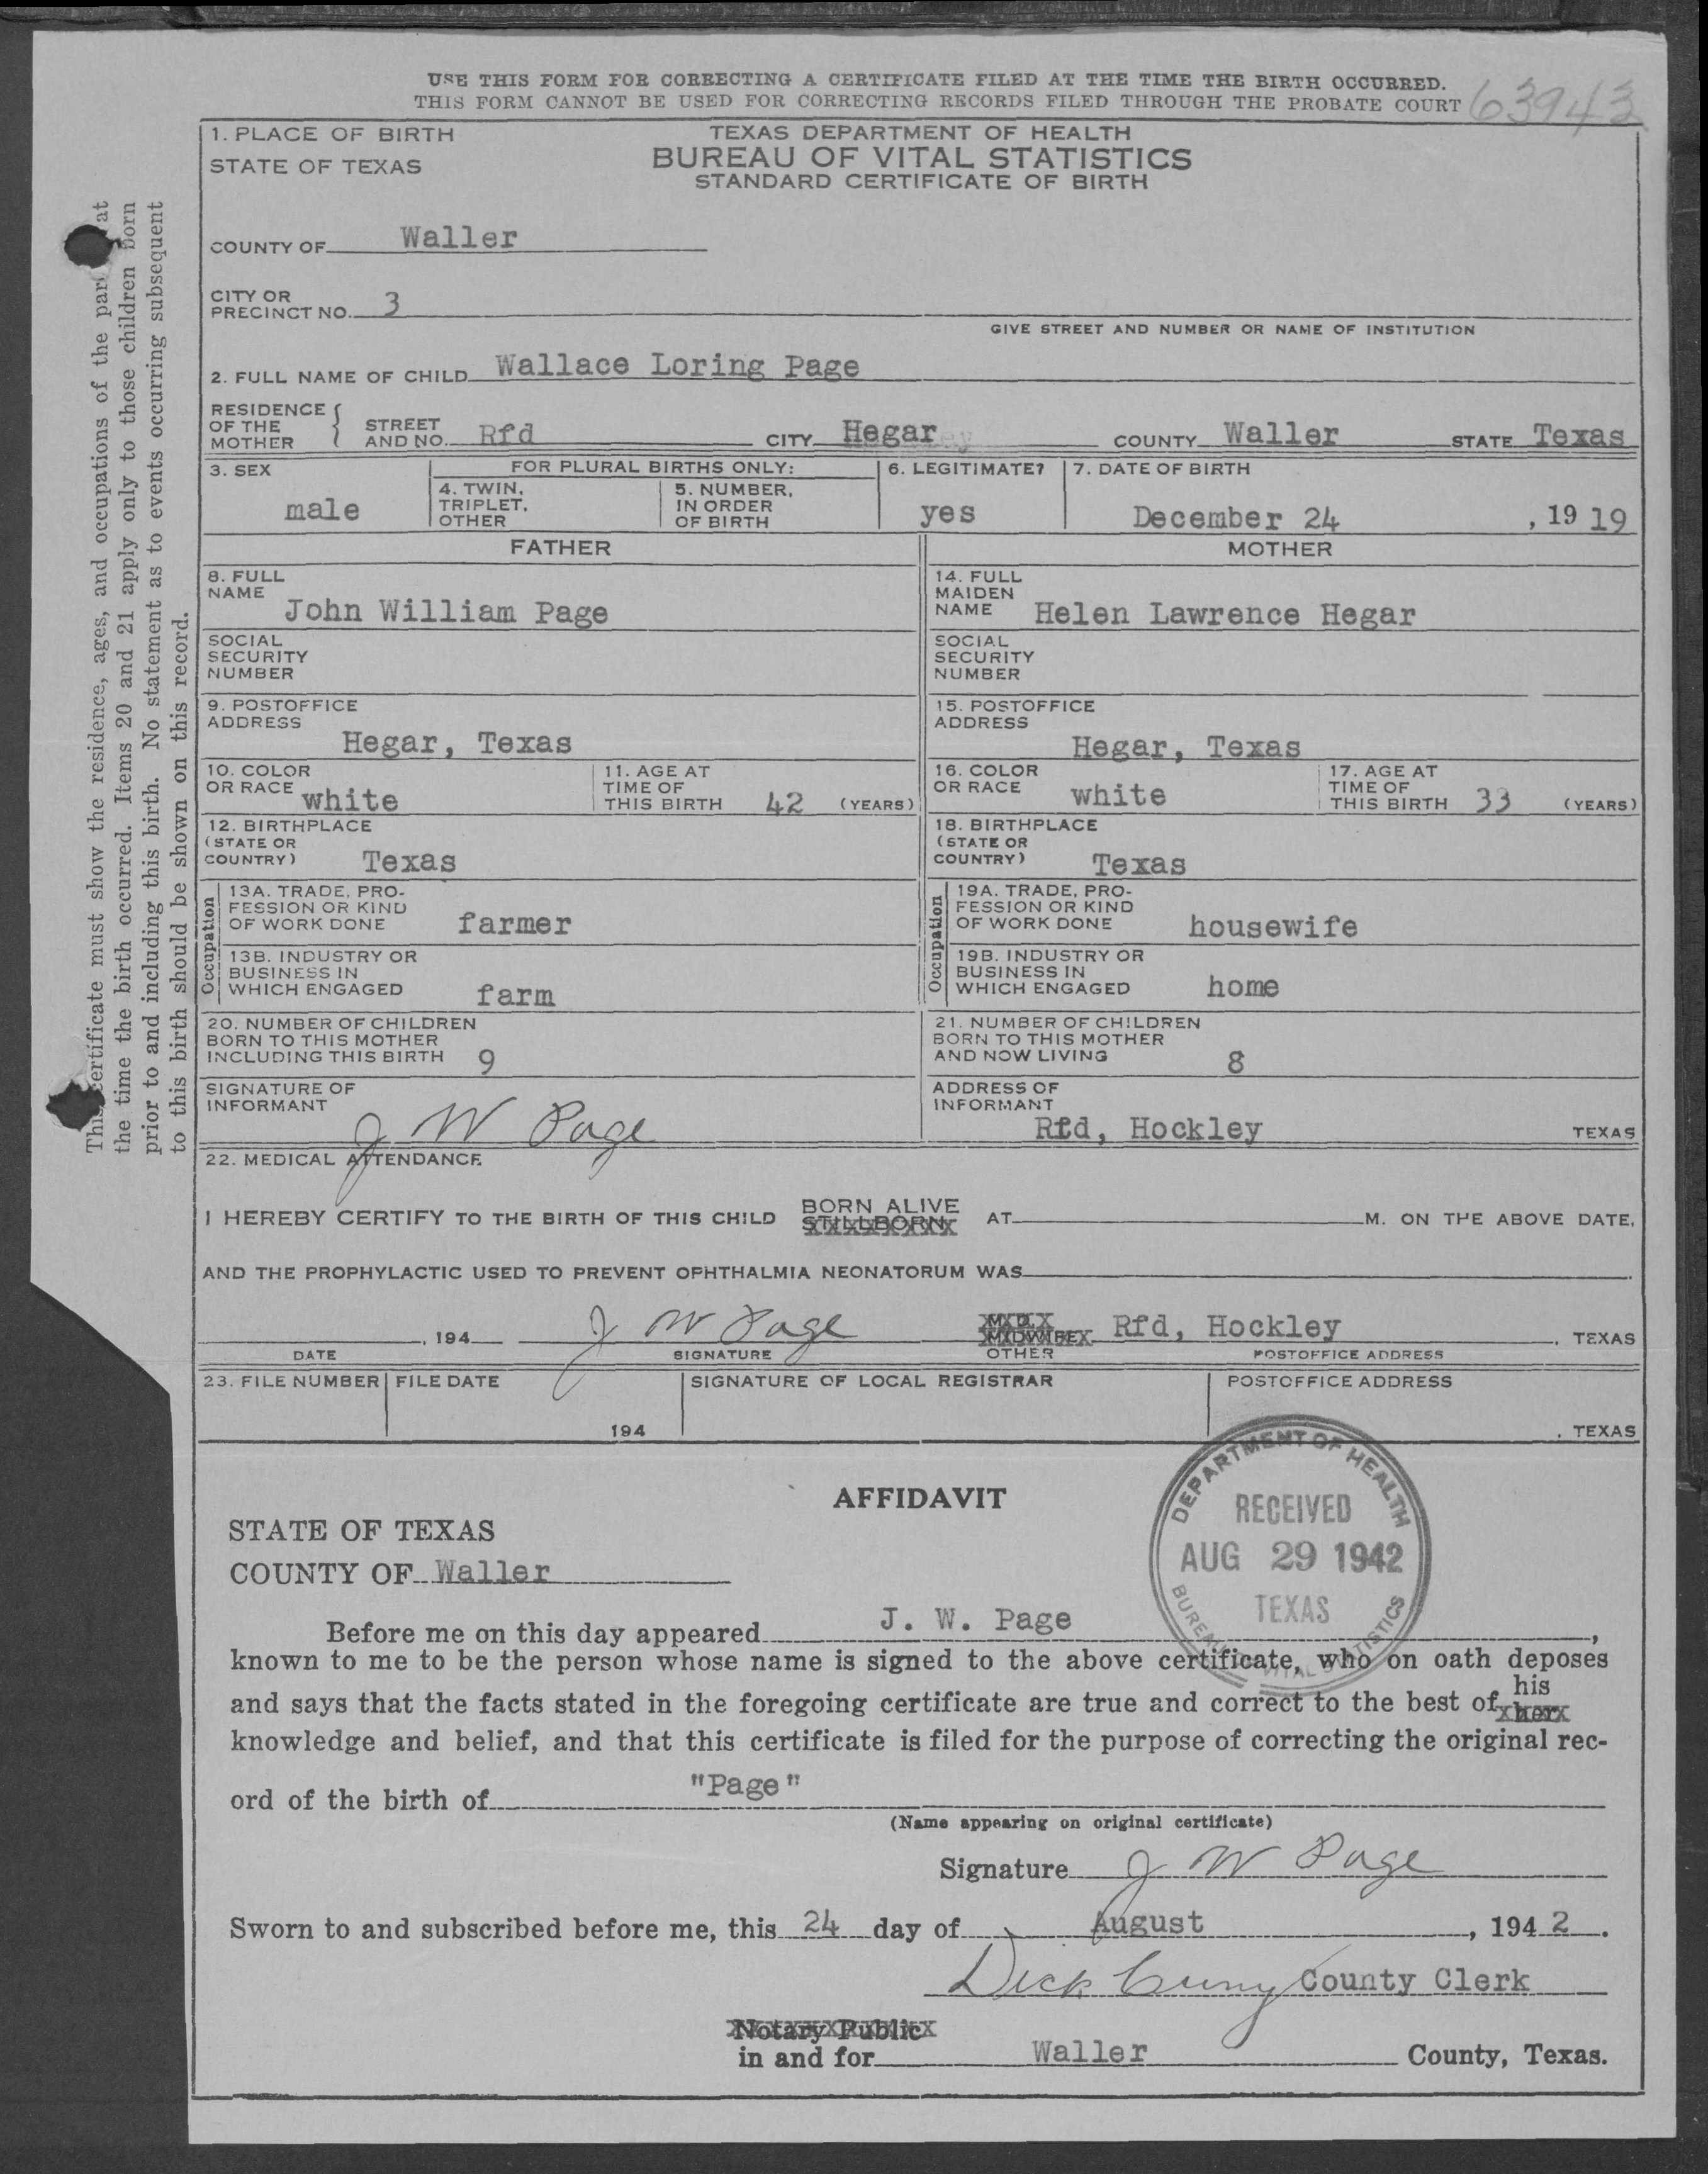 USE THIS FORM FOR CORRECTING A CERTIFICATE FILED AT THE TIME THE BIRTH OCCURRED.
THIS FORM CANNOT BE USED FOR CORRECTING RECORDS FILED THROUGH THE PROBATE COURT
63943
1. PLACE OF BIRTH
STATE OF TEXAS
TEXAS DEPARTMENT OF HEALTH
BUREAU OF VITAL STATISTICS
STANDARD CERTIFICATE OF BIRTH
COUNTY OF Waller
CITY OR
PRECINCT NO. 3
GIVE STREET AND NUMBER OR NAME OF INSTITUTION
2. FULL NAME OF CHILD Wallace Loring Page
RESIDENCE OF THE MOTHER { STREET AND NO. Rfd CITY Hegar COUNTY Waller STATE Texas
3. SEX male
FOR PLURAL BIRTHS ONLY:
4. TWIN, TRIPLET, OTHER
5. NUMBER, IN ORDER OF BIRTH
6. LEGITIMATE? yes
7. DATE OF BIRTH December 24, 19 19
FATHER
8. FULL NAME John William Page
SOCIAL SECURITY NUMBER
9. POSTOFFICE ADDRESS Hegar, Texas
10. COLOR OR RACE white
11. AGE AT TIME OF THIS BIRTH 42 (YEARS)
12. BIRTHPLACE (STATE OR COUNTRY) Texas
Occupation
13A. TRADE, PROFESSION OR KIND OF WORK DONE farmer
13B. INDUSTRY OR BUSINESS IN WHICH ENGAGED farm
MOTHER
14. FULL MAIDEN NAME Helen Lawrence Hegar
SOCIAL SECURITY NUMBER
15. POSTOFFICE ADDRESS Hegar, Texas
16. COLOR OR RACE white
17. AGE AT TIME OF THIS BIRTH 33 (YEARS)
18. BIRTHPLACE (STATE OR COUNTRY) Texas
Occupation
19A. TRADE, PROFESSION OR KIND OF WORK DONE housewife
19B. INDUSTRY OR BUSINESS IN WHICH ENGAGED home
20. NUMBER OF CHILDREN BORN TO THIS MOTHER INCLUDING THIS BIRTH 9
21. NUMBER OF CHILDREN BORN TO THIS MOTHER AND NOW LIVING 8
SIGNATURE OF INFORMANT J W Page
ADDRESS OF INFORMANT Rfd, Hockley TEXAS
22. MEDICAL ATTENDANCE
I HEREBY CERTIFY TO THE BIRTH OF THIS CHILD BORN ALIVE STILLBORN AT M. ON THE ABOVE DATE,
AND THE PROPHYLACTIC USED TO PREVENT OPHTHALMIA NEONATORUM WAS
, 194 J W Page M.D. MIDWIFE OTHER Rfd, Hockley , TEXAS
DATE SIGNATURE POSTOFFICE ADDRESS
23. FILE NUMBER FILE DATE 194 SIGNATURE OF LOCAL REGISTRAR POSTOFFICE ADDRESS , TEXAS
This certificate must show the residence, ages, and occupations of the at
the time the birth occurred. Items 20 and 21 apply only to those children born
prior to and including this birth. No statement as to events occurring subsequent
to this birth should be shown on this record.
DEPARTMENT OF HEALTH
RECEIVED
AUG 29 1942
TEXAS
BUREAU VITAL STATISTICS
AFFIDAVIT
STATE OF TEXAS
COUNTY OF Waller
Before me on this day appeared J. W. Page,
known to me to be the person whose name is signed to the above certificate, who on oath deposes
and says that the facts stated in the foregoing certificate are true and correct to the best of his her
knowledge and belief, and that this certificate is filed for the purpose of correcting the original rec-
ord of the birth of "Page"
(Name appearing on original certificate)
Signature J W Page
Sworn to and subscribed before me, this 24 day of August, 194 2.
Dick Cuny County Clerk
Notary Public
in and for Waller County, Texas.